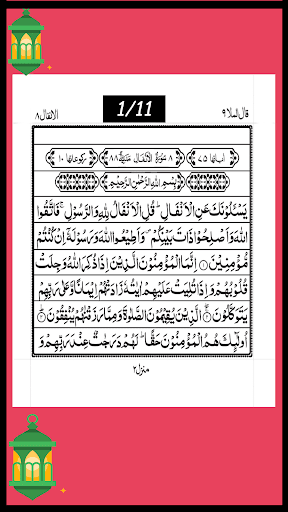 1/11
قال الملا ٩
الانفال ٨
اٰیاتها ٧٥
٨ سُوْرَةُ الْاَنْفَالِ مَدَنِیَّةٌ ٨٨
رکوعاتها ١٠
بِسْمِ اللهِ الرَّحْمٰنِ الرَّحِیْمِ
یَسْـَٔلُوْنَكَ عَنِ الْاَنْفَالِ ؕ قُلِ الْاَنْفَالُ لِلّٰهِ وَالرَّسُوْلِ ۚ فَاتَّقُوا
اللهَ وَاَصْلِحُوْا ذَاتَ بَیْنِكُمْ ۪ وَاَطِیْعُوا اللهَ وَرَسُوْلَهٗۤ اِنْ كُنْتُمْ
مُّؤْمِنِیْنَ ۝١ اِنَّمَا الْمُؤْمِنُوْنَ الَّذِیْنَ اِذَا ذُكِرَ اللهُ وَجِلَتْ
قُلُوْبُهُمْ وَاِذَا تُلِیَتْ عَلَیْهِمْ اٰیٰتُهٗ زَادَتْهُمْ اِیْمَانًا وَّعَلٰى رَبِّهِمْ
یَتَوَكَّلُوْنَ ۝٢ الَّذِیْنَ یُقِیْمُوْنَ الصَّلٰوةَ وَمِمَّا رَزَقْنٰهُمْ یُنْفِقُوْنَ ۝٣
اُولٰٓئِكَ هُمُ الْمُؤْمِنُوْنَ حَقًّا ؕ لَهُمْ دَرَجٰتٌ عِنْدَ رَبِّهِمْ وَ
منزل ٢